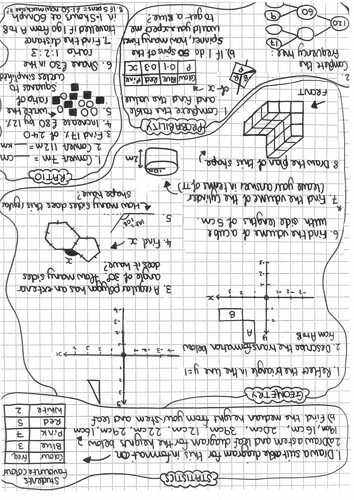 STATISTICS
1. Draw a suitable diagram for this information
2.a) Draw a stem and leaf diagram for the heights below
19cm, 16cm, 20cm, 39cm, 12cm, 22cm, 29cm,
b) Find the median height from your stem and leaf
Students
favourite colour
Colour freq.
Blue 3
Pink 7
Red 5
White 2
GEOMETRY
1. Reflect the triangle in the line y=1
2. Describe the transformation below
from A to B
A
B
3. A regular polygon has an exterior
angle of 30°. How many sides
does it have?
4. Find x
x
5.
How many sides does this regular
shape have?
6. Find the volume of a cube
with side lengths of 5cm.
7. Find the volume of the cylinder
(leave your answer in terms of π)
8. Draw the plan of this shape.
FRONT
PROBABILITY
1. Complete the table
and find the value
of x
Colour Blue Red Pink
P 0.1 0.3 x
b) If I do 50 spins of the
spinner, how many times
would you expect
to get a Blue?
2.
Complete the
frequency tree:
120
60
13
9
RATIO
1. Convert 7m = cm
2. Convert 112m = km
3. Find 17% of 240
4. Increase £80 by 12%
5. Write the
ratio of
squares to
circles simplified
6. Share £30 in the
ratio 1:2:3
7. Find the distance
travelled if I go from A to B